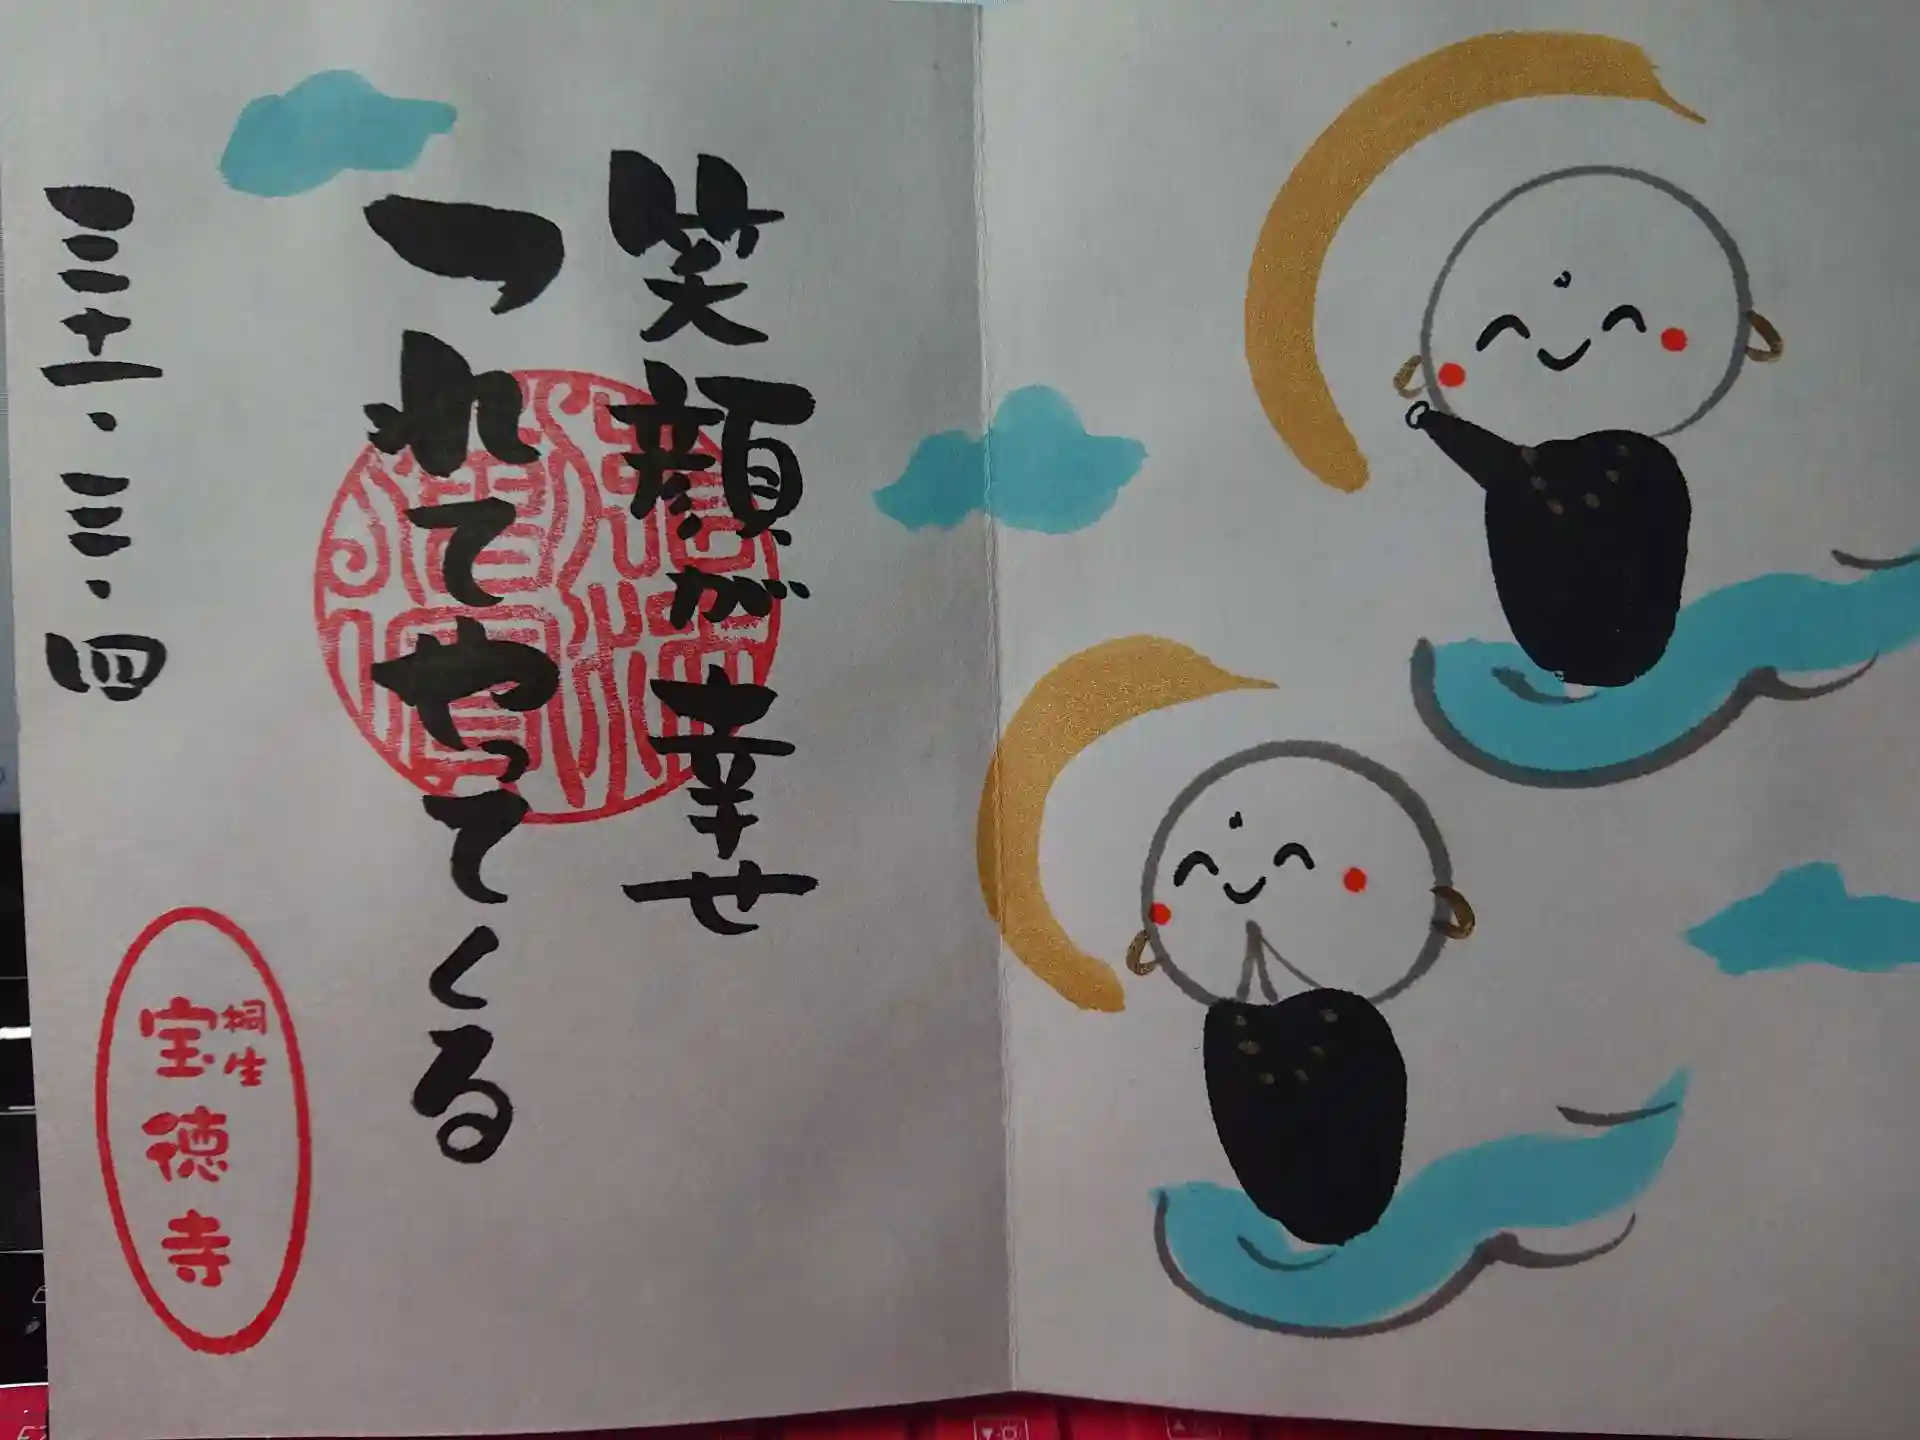 笑顔が幸せ
つれてやってくる
三十一・三・四
桐生
宝徳寺